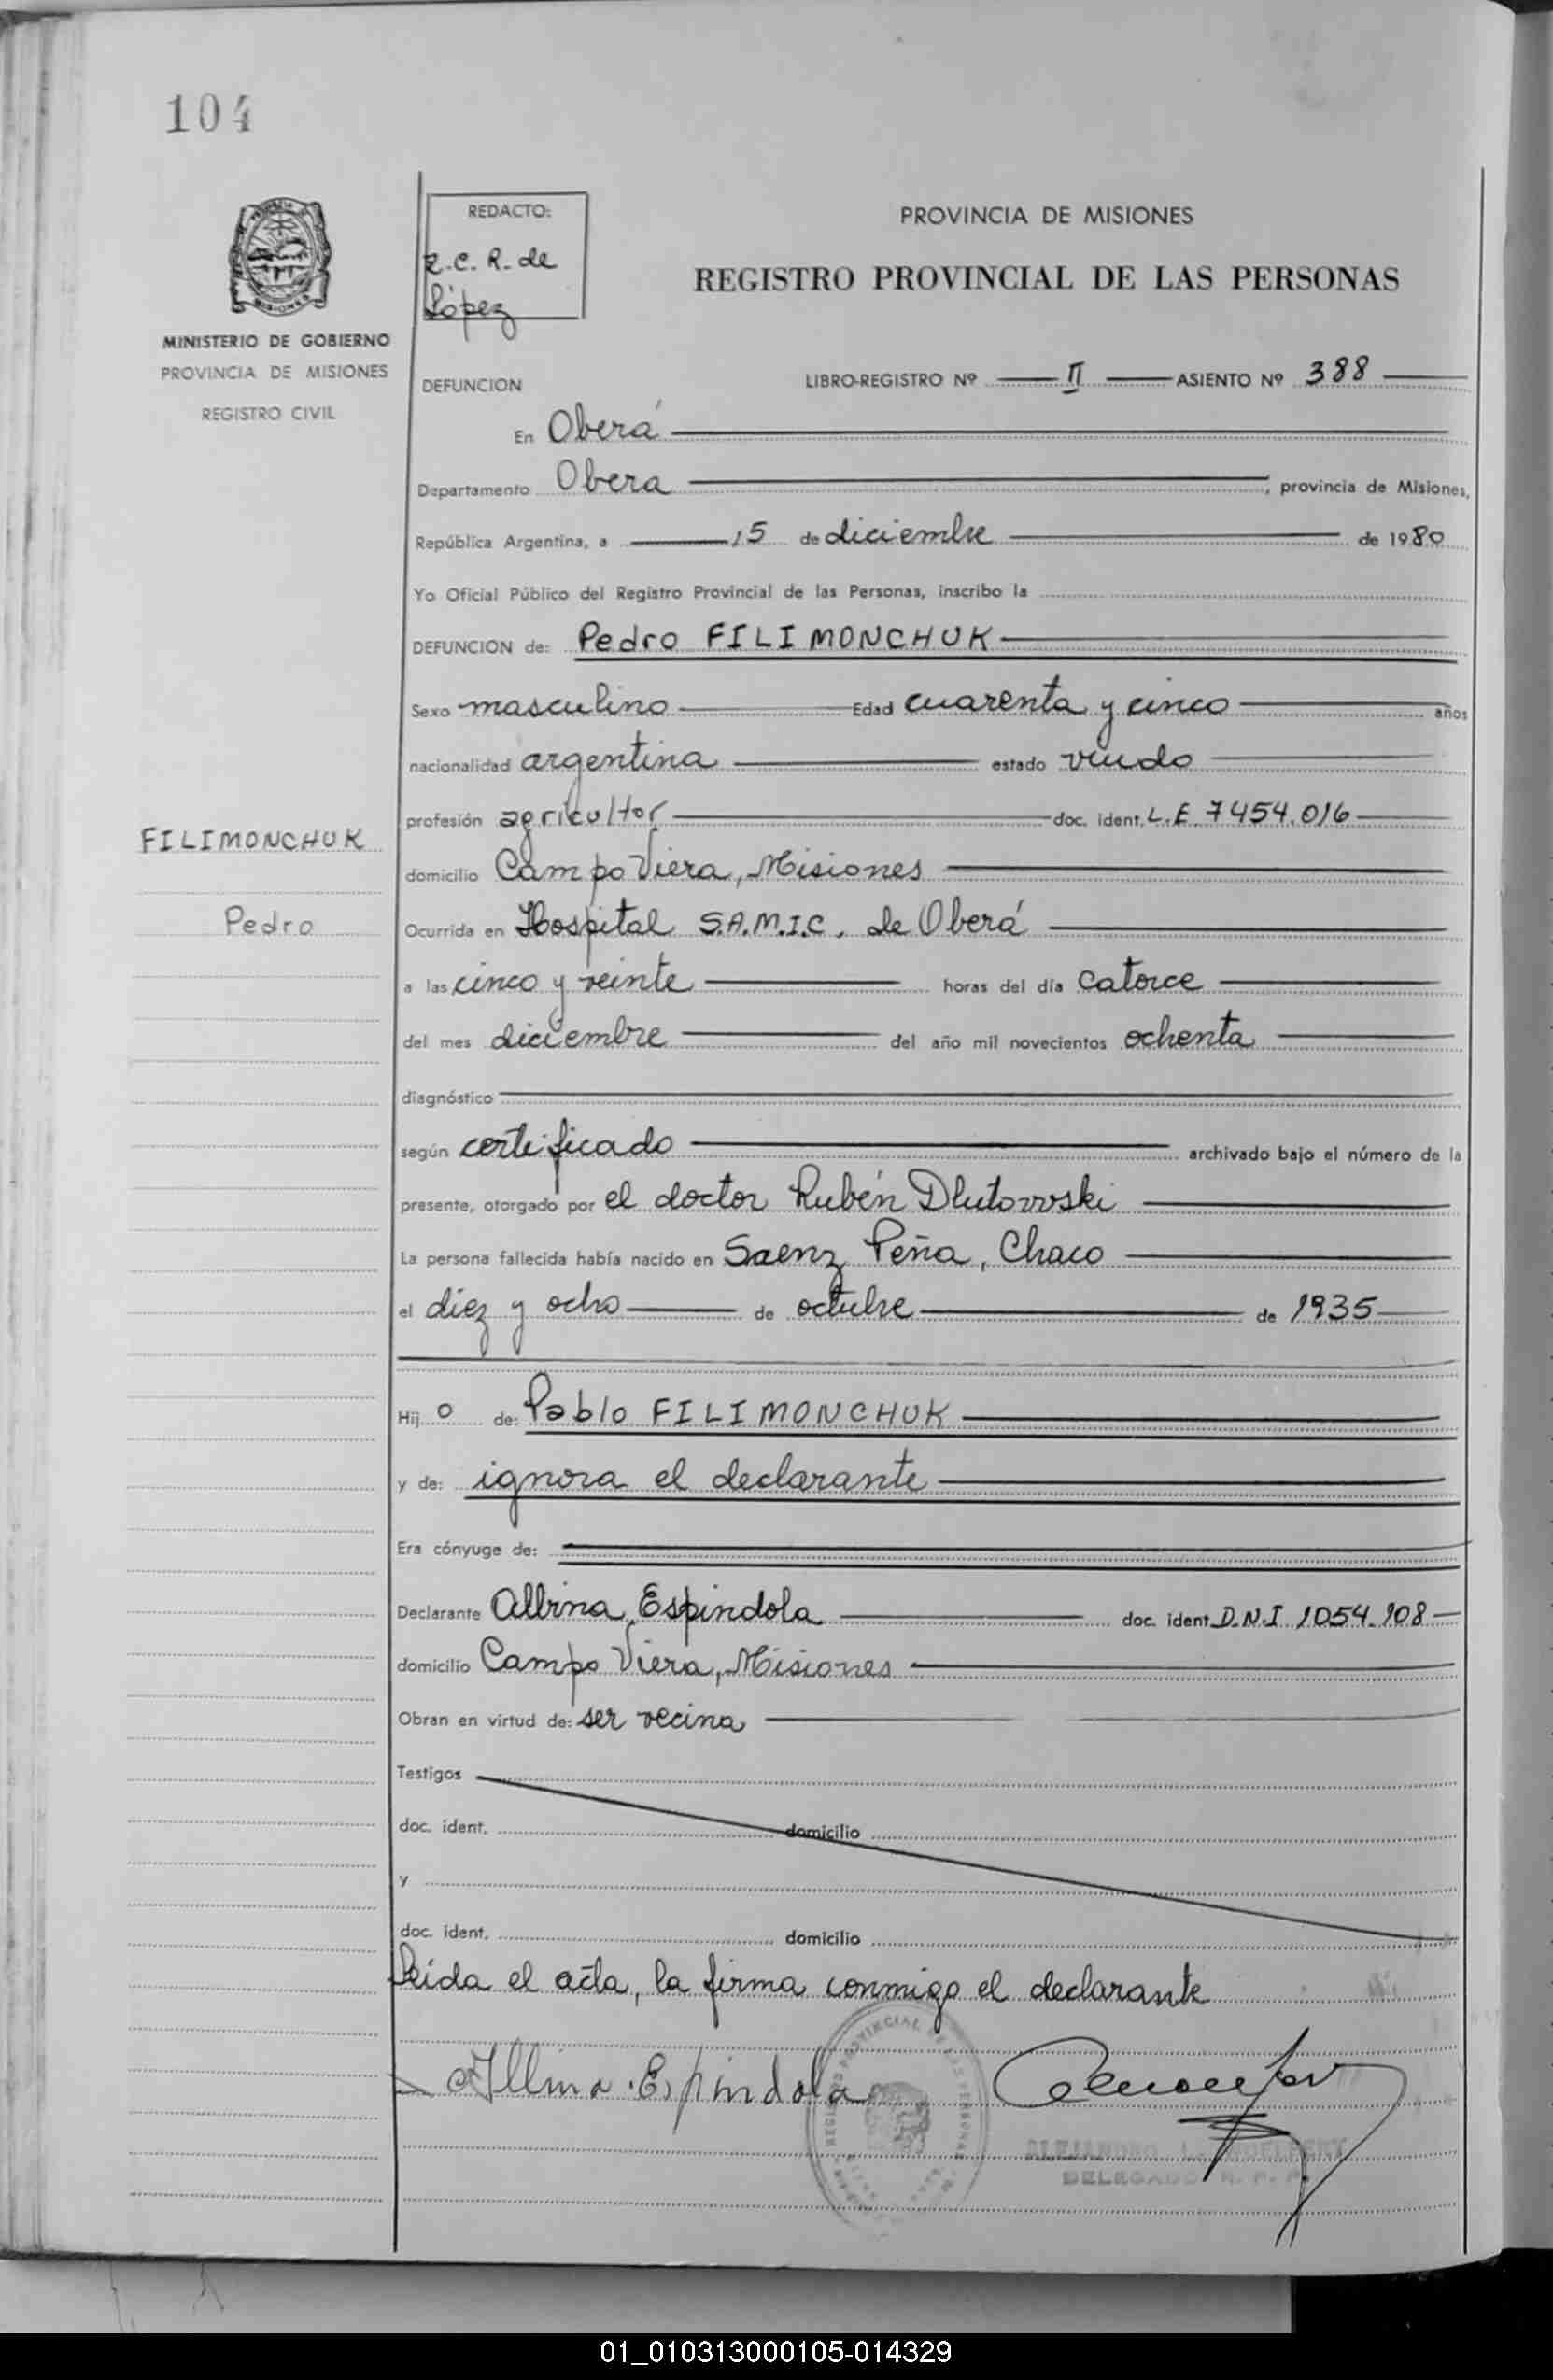 104
REDACTO:
R.C.R. de
López
PROVINCIA DE MISIONES
REGISTRO PROVINCIAL DE LAS PERSONAS
MINISTERIO DE GOBIERNO
PROVINCIA DE MISIONES
REGISTRO CIVIL
DEFUNCION LIBRO-REGISTRO Nº II ASIENTO Nº 388
En Oberá
Departamento Obera, provincia de Misiones,
República Argentina, a 15 de diciembre de 1980
Yo Oficial Público del Registro Provincial de las Personas, inscribo la
DEFUNCION de: Pedro FILIMONCHUK
Sexo masculino Edad cuarenta y cinco años
nacionalidad argentina estado viudo
profesión agricultor doc. ident. L.E. 7454.016
FILIMONCHUK
domicilio Campo Viera, Misiones
Pedro
Ocurrida en Hospital S.A.M.I.C. de Oberá
a las cinco y veinte horas del día catorce
del mes diciembre del año mil novecientos ochenta
diagnóstico
según certificado archivado bajo el número de la
presente, otorgado por el doctor Rubén Dlutowski
La persona fallecida había nacido en Saenz Peña, Chaco
el diez y ocho de octubre de 1935
Hijo de: Pablo FILIMONCHUK
y de: ignora el declarante
Era cónyuge de:
Declarante Albina Espindola doc. ident. D.N.I 1054.908
domicilio Campo Viera, Misiones
Obran en virtud de: ser vecina
Testigos
doc. ident. domicilio
y
doc. ident. domicilio
Leida el acta, la firma conmigo el declarante
Albina Espindola
ALEJANDRO
DELEGADO R. P. P.
01_010313000105-014329